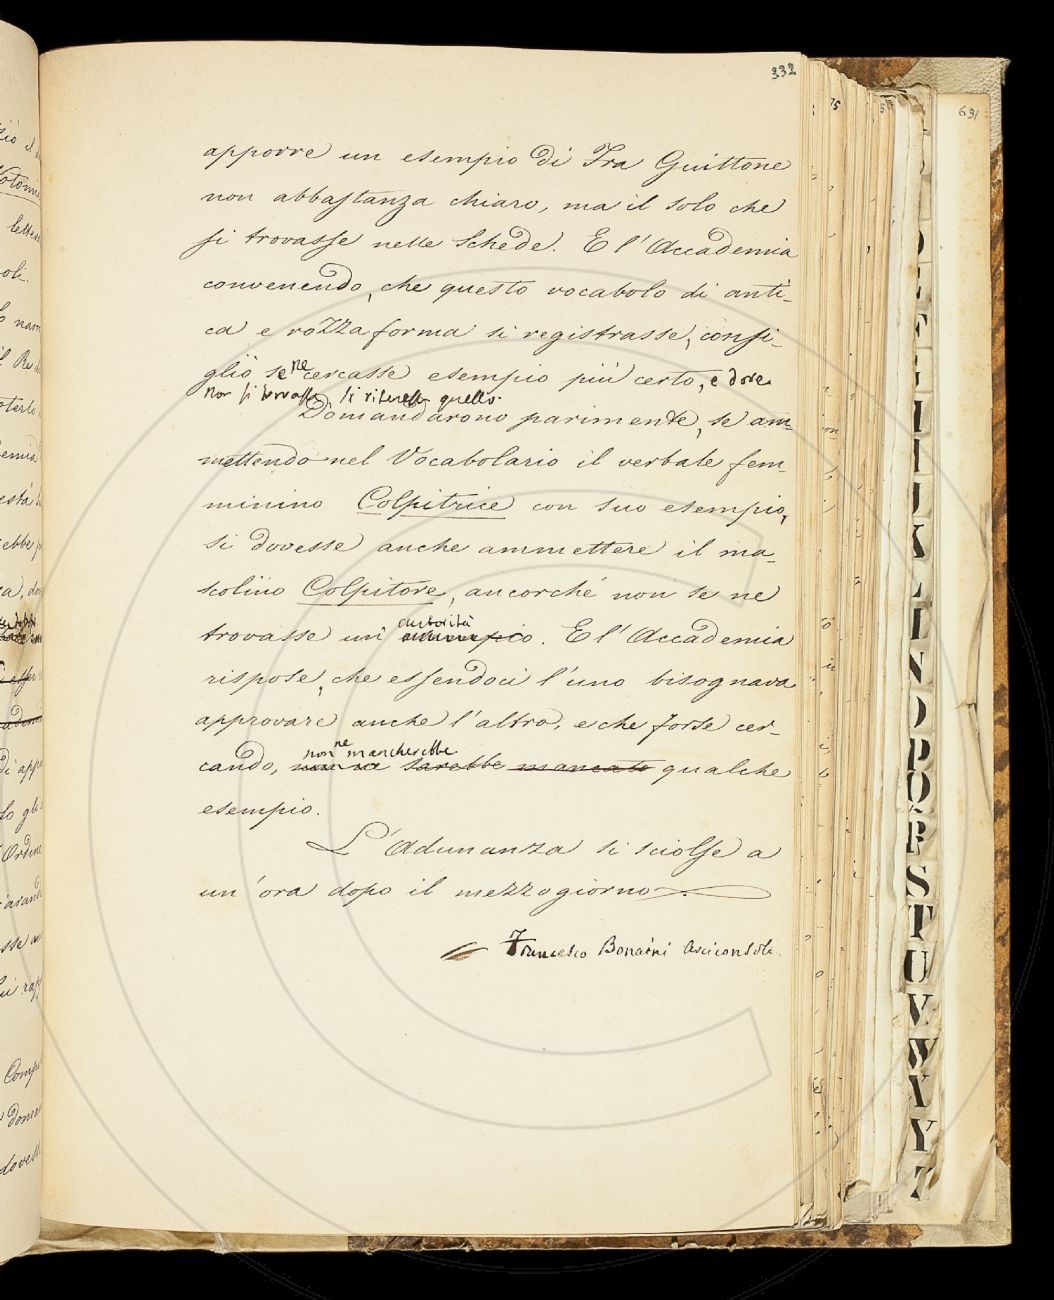 332
apporre un esempio di Fra Guittone
non abbastanza chiaro, ma il solo che
si trovasse nelle Schede. E l'Accademia
convenendo, che questo vocabolo di anti-
ca e rozza forma si registrasse, consi-
gliò se ne cercasse esempio più certo, e dove
non si trovasse si ritenesse quello.
Domandarono parimente, se am-
mettendo nel Vocabolario il verbale fem-
minino Colpitrice con suo esempio,
si dovesse anche ammettere il ma-
scolino Colpitore, ancorchè non se ne
autorità
trovasse un' o. E l'Accademia
rispose, che essendoci l'uno bisognava
approvare anche l'altro, e che forse cer-
non ne mancherebbe
cando, sarebbe mancato qualche
esempio.
L'Adunanza si sciolse a
un'ora dopo il mezzogiorno
Francesco Bonaini Arciconsolo.
691
K
L
N
O
P
Q
R
S
T
U
V
W
X
Y
Z